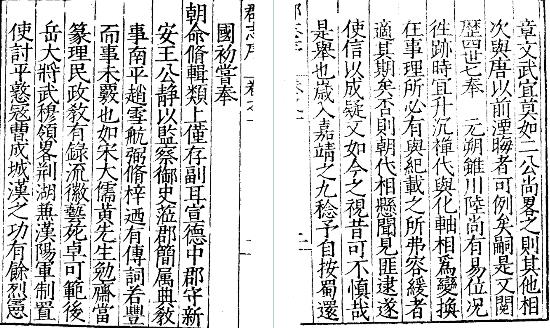 章文武宜莫如二公尚畧之則其他相
次與唐以前湮晦者可例矣嗣是又閱
歷四七奉　元朔雖川陸尚有易位况
徃跡時宜升沉禪代與化軸相為變換
在事理所必有與紀載之所弗容緩者
適其期矣否則朝代相懸聞見匪逮遂
使信以成疑文如今之視昔可不慎哉
是舉也歲入嘉靖之九稔予自按蜀還
國初嘗奉
朝命脩輯類上僅存副耳宣德中郡守新
安王公静以監察御史蒞郡簡属典教
事南平趙雪航弼脩梓迺有傳詞若豐
而事未覈也如宋大儒黄先生勉齋當
篆理民政教有錄流徽藝死卓可範後
岳大將武穆領畧荆湖無漢陽軍制置
使討平憝寇曹成城漢之功有餘烈憲